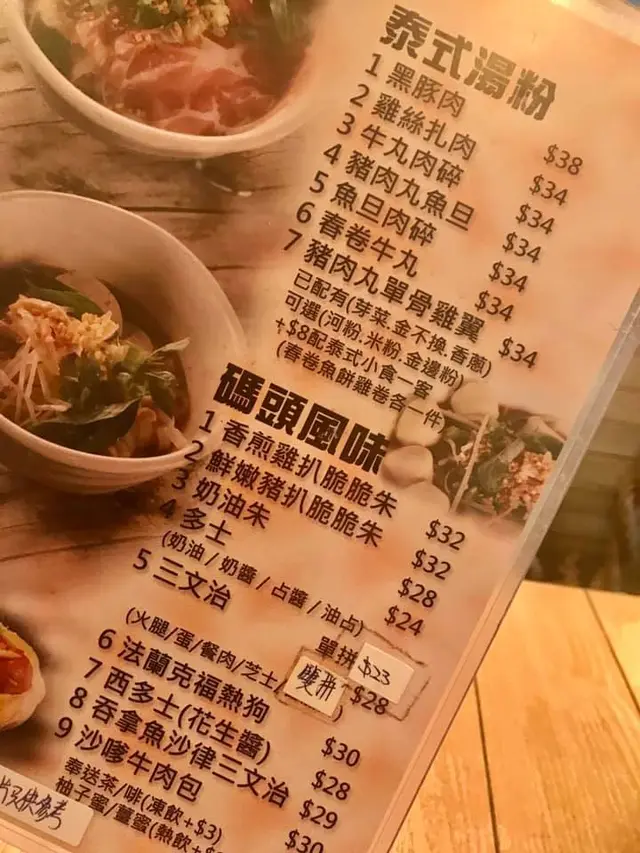 泰式湯粉
1 黑豚肉 $38
2 雞絲扎肉 $34
3 牛丸肉碎 $34
4 豬肉丸魚旦 $34
5 魚旦肉碎 $34
6 春卷牛丸 $34
7 豬肉丸單骨雞翼 $34
已配有(芽菜.金不換.香蔥)
可選(河粉.米粉.金邊粉)
+$8配泰式小食一客
(春卷魚餅雞卷各一件)
碼頭風味
1 香煎雞扒脆脆朱 $32
2 鮮嫩豬扒脆脆朱 $32
3 奶油朱 $28
4 多士 $24
(奶油/奶醬/占醬/油占)
5 三文治 單拼 $23
(火腿/蛋/餐肉/芝士/ ) 雙拼 $28
6 法蘭克福熱狗 $30
7 西多士(花生醬) $28
8 吞拿魚沙律三文治 $29
9 沙嗲牛肉包 $30
奉送茶/啡(凍飲+$3)
柚子蜜/薑蜜(熱飲+$